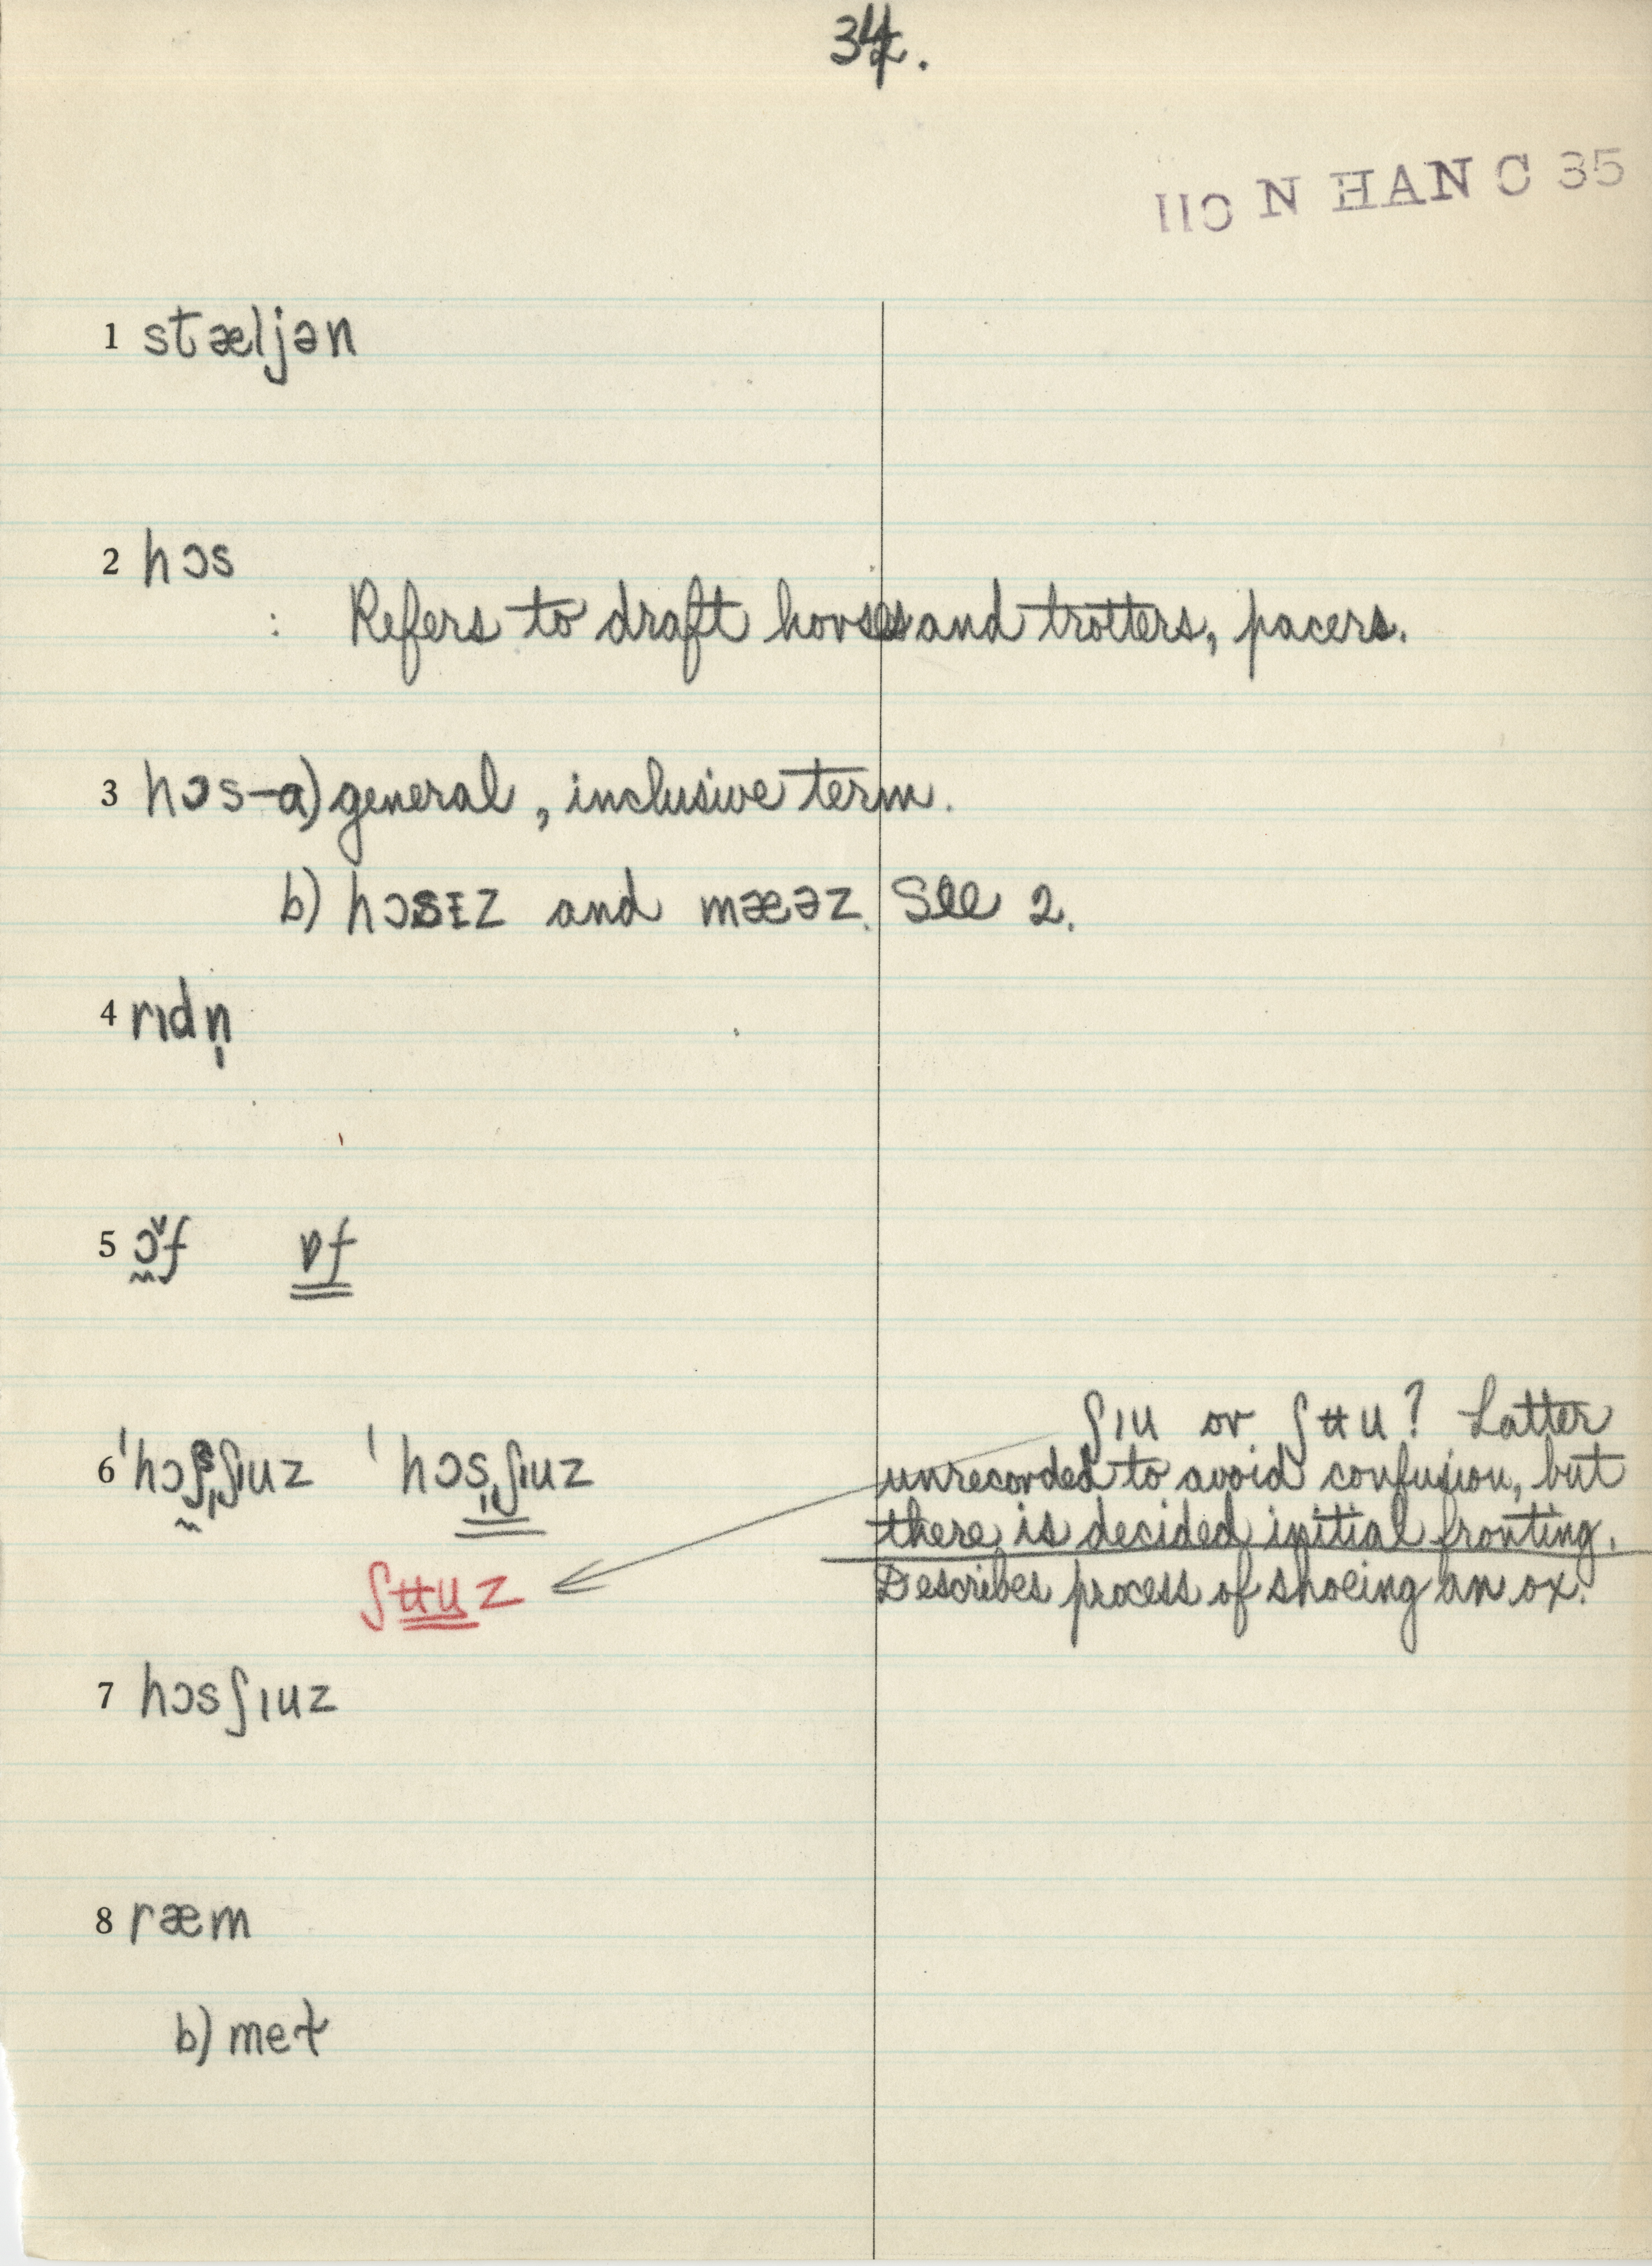 34.
110 N HAN C 35
1 stæljən
2 hɔs
: Refers to draft horses and trotters, pacers.
3 hɔs-a) general, inclusive term.
b) hɔsɪz and mæəz. See 2.
4 rɪdn̩
5 ɔ̌f ɒf
ʃɪu or ʃʉu? Latter
unrecorded to avoid confusion, but
there is decided initial fronting.
6 'hɔʃˌʃɪuz 'hɔsˌʃɪuz
ʃʉuz
Describes process of shoeing an ox.
7 hɔsʃɪuz
8 ræm
b) meɫ